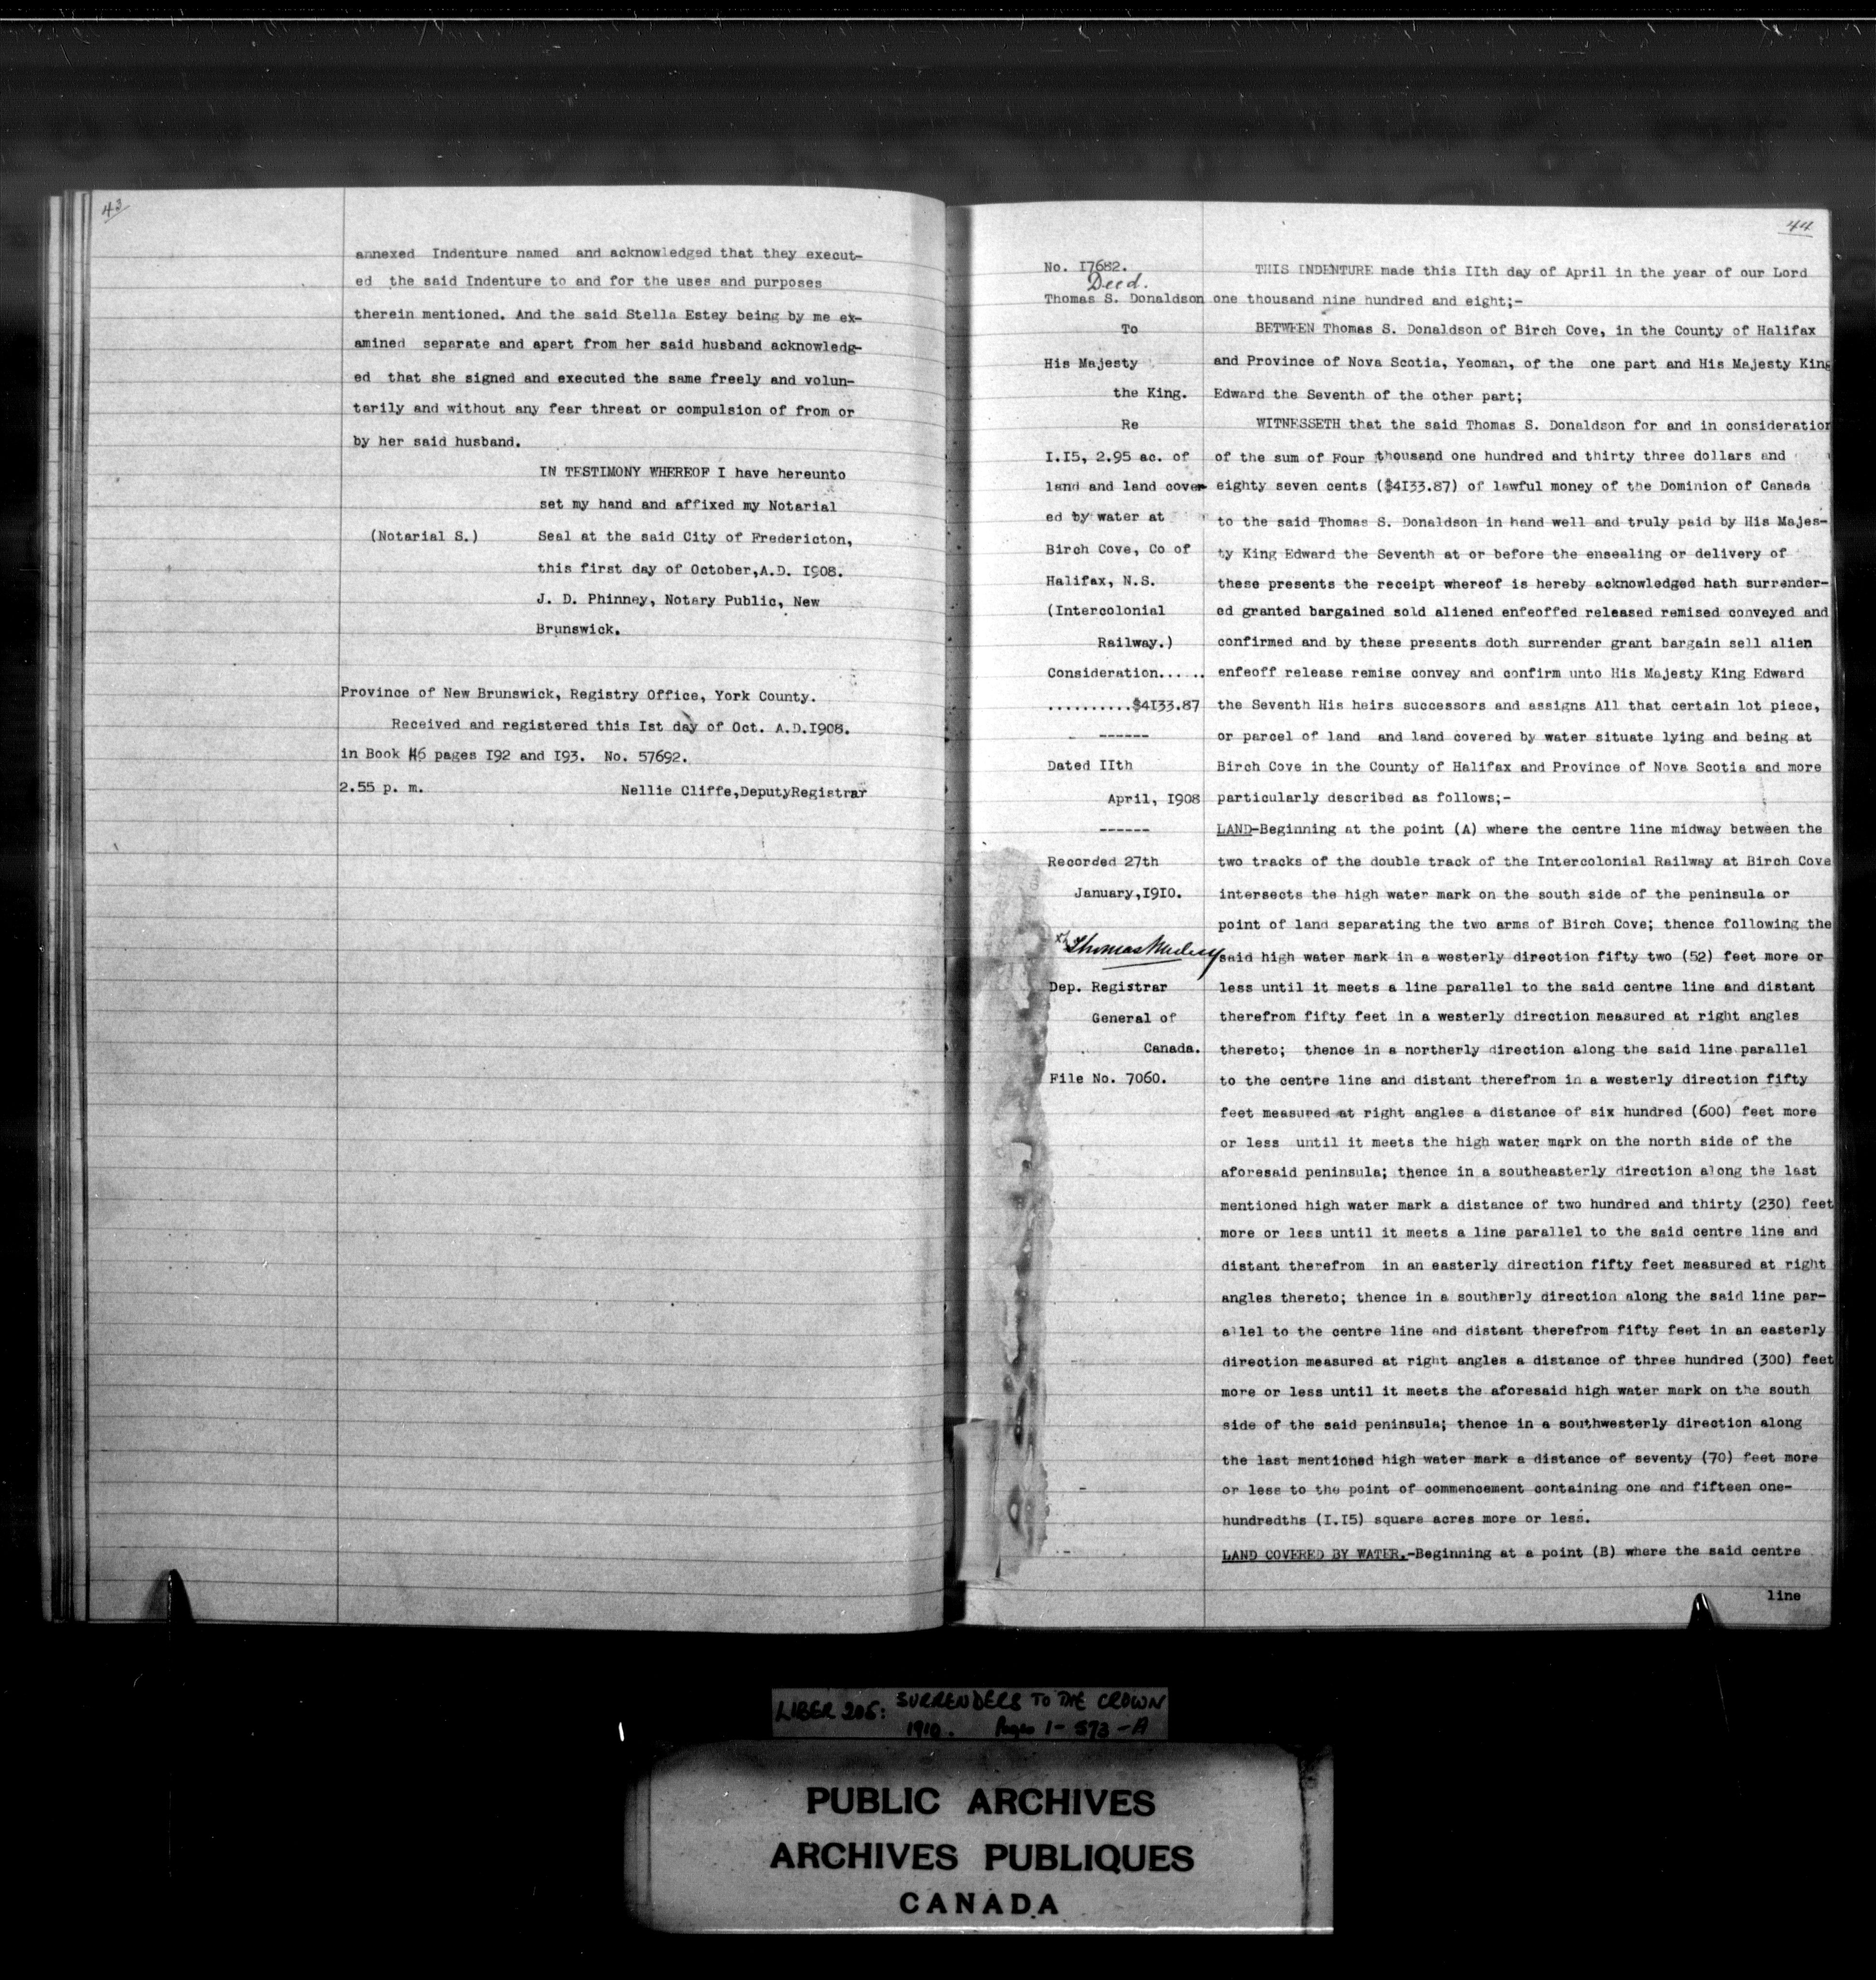 43
annexed Indenture named and acknowledged that they execut-
ed the said Indenture to and for the uses and purposes
therein mentioned. And the said Stella Estey being by me ex-
amined separate and apart from her said husband acknowledg-
ed that she signed and executed the same freely and volun-
tarily and without any fear threat or compulsion of from or
by her said husband.
IN TESTIMONY WHEREOF I have hereunto
set my hand and affixed my Notarial
(Notarial S.) Seal at the said City of Fredericton,
this first day of October,A.D. I908.
J. D. Phinney, Notary Public, New
Brunswick.
Province of New Brunswick, Registry Office, York County.
Received and registered this Ist day of Oct. A.D.I908.
in Book 46 pages I92 and I93. No. 57692.
2.55 p. m. Nellie Cliffe,DeputyRegistrar
44
No. I7682.
Deed.
Thomas S. Donaldson
To
His Majesty
the King.
Re
I.I5, 2.95 ac. of
land and land cover-
ed by water at
Birch Cove, Co of
Halifax, N.S.
(Intercolonial
Railway.)
Consideration......
..........$4I33.87
------
Dated IIth
April, I908
------
Recorded 27th
January,I9I0.
Thomas Mulvey
Dep. Registrar
General of
Canada.
File No. 7060.
THIS INDENTURE made this IIth day of April in the year of our Lord
one thousand nine hundred and eight;-
BETWEEN Thomas S. Donaldson of Birch Cove, in the County of Halifax
and Province of Nova Scotia, Yeoman, of the one part and His Majesty King
Edward the Seventh of the other part;
WITNESSETH that the said Thomas S. Donaldson for and in consideration
of the sum of Four thousand one hundred and thirty three dollars and
eighty seven cents ($4I33.87) of lawful money of the Dominion of Canada
to the said Thomas S. Donaldson in hand well and truly paid by His Majes-
ty King Edward the Seventh at or before the ensealing or delivery of
these presents the receipt whereof is hereby acknowledged hath surrender-
ed granted bargained sold aliened enfeoffed released remised conveyed and
confirmed and by these presents doth surrender grant bargain sell alien
enfeoff release remise convey and confirm unto His Majesty King Edward
the Seventh His heirs successors and assigns All that certain lot piece,
or parcel of land and land covered by water situate lying and being at
Birch Cove in the County of Halifax and Province of Nova Scotia and more
particularly described as follows;-
LAND-Beginning at the point (A) where the centre line midway between the
two tracks of the double track of the Intercolonial Railway at Birch Cove
intersects the high water mark on the south side of the peninsula or
point of land separating the two arms of Birch Cove; thence following the
said high water mark in a westerly direction fifty two (52) feet more or
less until it meets a line parallel to the said centre line and distant
therefrom fifty feet in a westerly direction measured at right angles
thereto; thence in a northerly direction along the said line parallel
to the centre line and distant therefrom in a westerly direction fifty
feet measured at right angles a distance of six hundred (600) feet more
or less until it meets the high water mark on the north side of the
aforesaid peninsula; thence in a southeasterly direction along the last
mentioned high water mark a distance of two hundred and thirty (230) feet
more or less until it meets a line parallel to the said centre line and
distant therefrom in an easterly direction fifty feet measured at right
angles thereto; thence in a southerly direction along the said line par-
allel to the centre line and distant therefrom fifty feet in an easterly
direction measured at right angles a distance of three hundred (300) feet
more or less until it meets the aforesaid high water mark on the south
side of the said peninsula; thence in a southwesterly direction along
the last mentioned high water mark a distance of seventy (70) feet more
or less to the point of commencement containing one and fifteen one-
hundredths (I.I5) square acres more or less.
LAND COVERED BY WATER.-Beginning at a point (B) where the said centre
line
LIBER 205: SURRENDERS TO THE CROWN
1910. Pages 1-573-A
PUBLIC ARCHIVES
ARCHIVES PUBLIQUES
CANADA